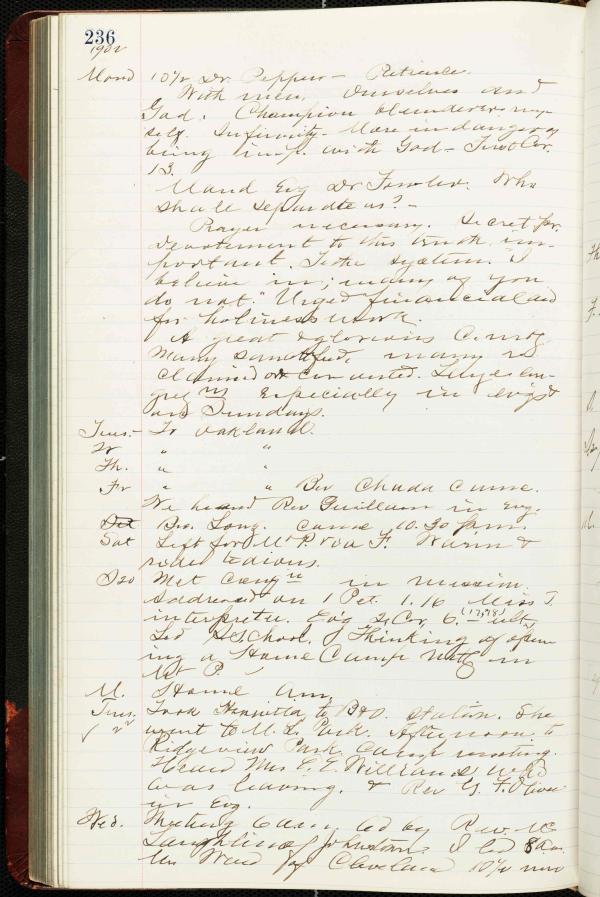 236
1902
Mond 10½ Dr. Pepper -
With men, ourselves and
God. Champion blunderers my-
self. Infirmity. More in danger of
being imp. with God - Fowler.
13.
Mond Evg Dr Fowler. Who
shall separate us? -
Prayer necessary. Secret for.
to this truth im-
portant. To the system. I
believe in; many of you
do not." Urged financial aid
for holiness work.
A great & glorious C. mtg.
Many sanctified, many re
claimed or converted. Large con-
greg ns especially in evg's
and Sundays.
Tues. - To Oakland.
W " "
Th. " "
Fr " " Bro Chada came.
We heard Rev Guillam in Evg.
Bro. Long. came 10.30 pm.
Sat Left for Mt P. via F. Warm &
rider tedious.
Met cong re in mission.
Addressed on 1 Pet. 1.16 Miss T.
interpreter. Evg 2 Cor. 6. (17,18)
Led S School. Thinking of open-
ing a Home Camp Mtg in
Mt P.
M. Home Am.
Tues. Took Henrietta to B&O. station. She
22 went to M. L. Park. Afternoon to
Ridgeview Park Camp meeting.
Heard Mrs E. E. Williams, who
was leaving. & Rev G. F. Oliver
in Evg.
Wed. Meeting led by Rev. Mc
Laughlin of Johnstown I led 8 a.m.
Ward of Cleveland 10½